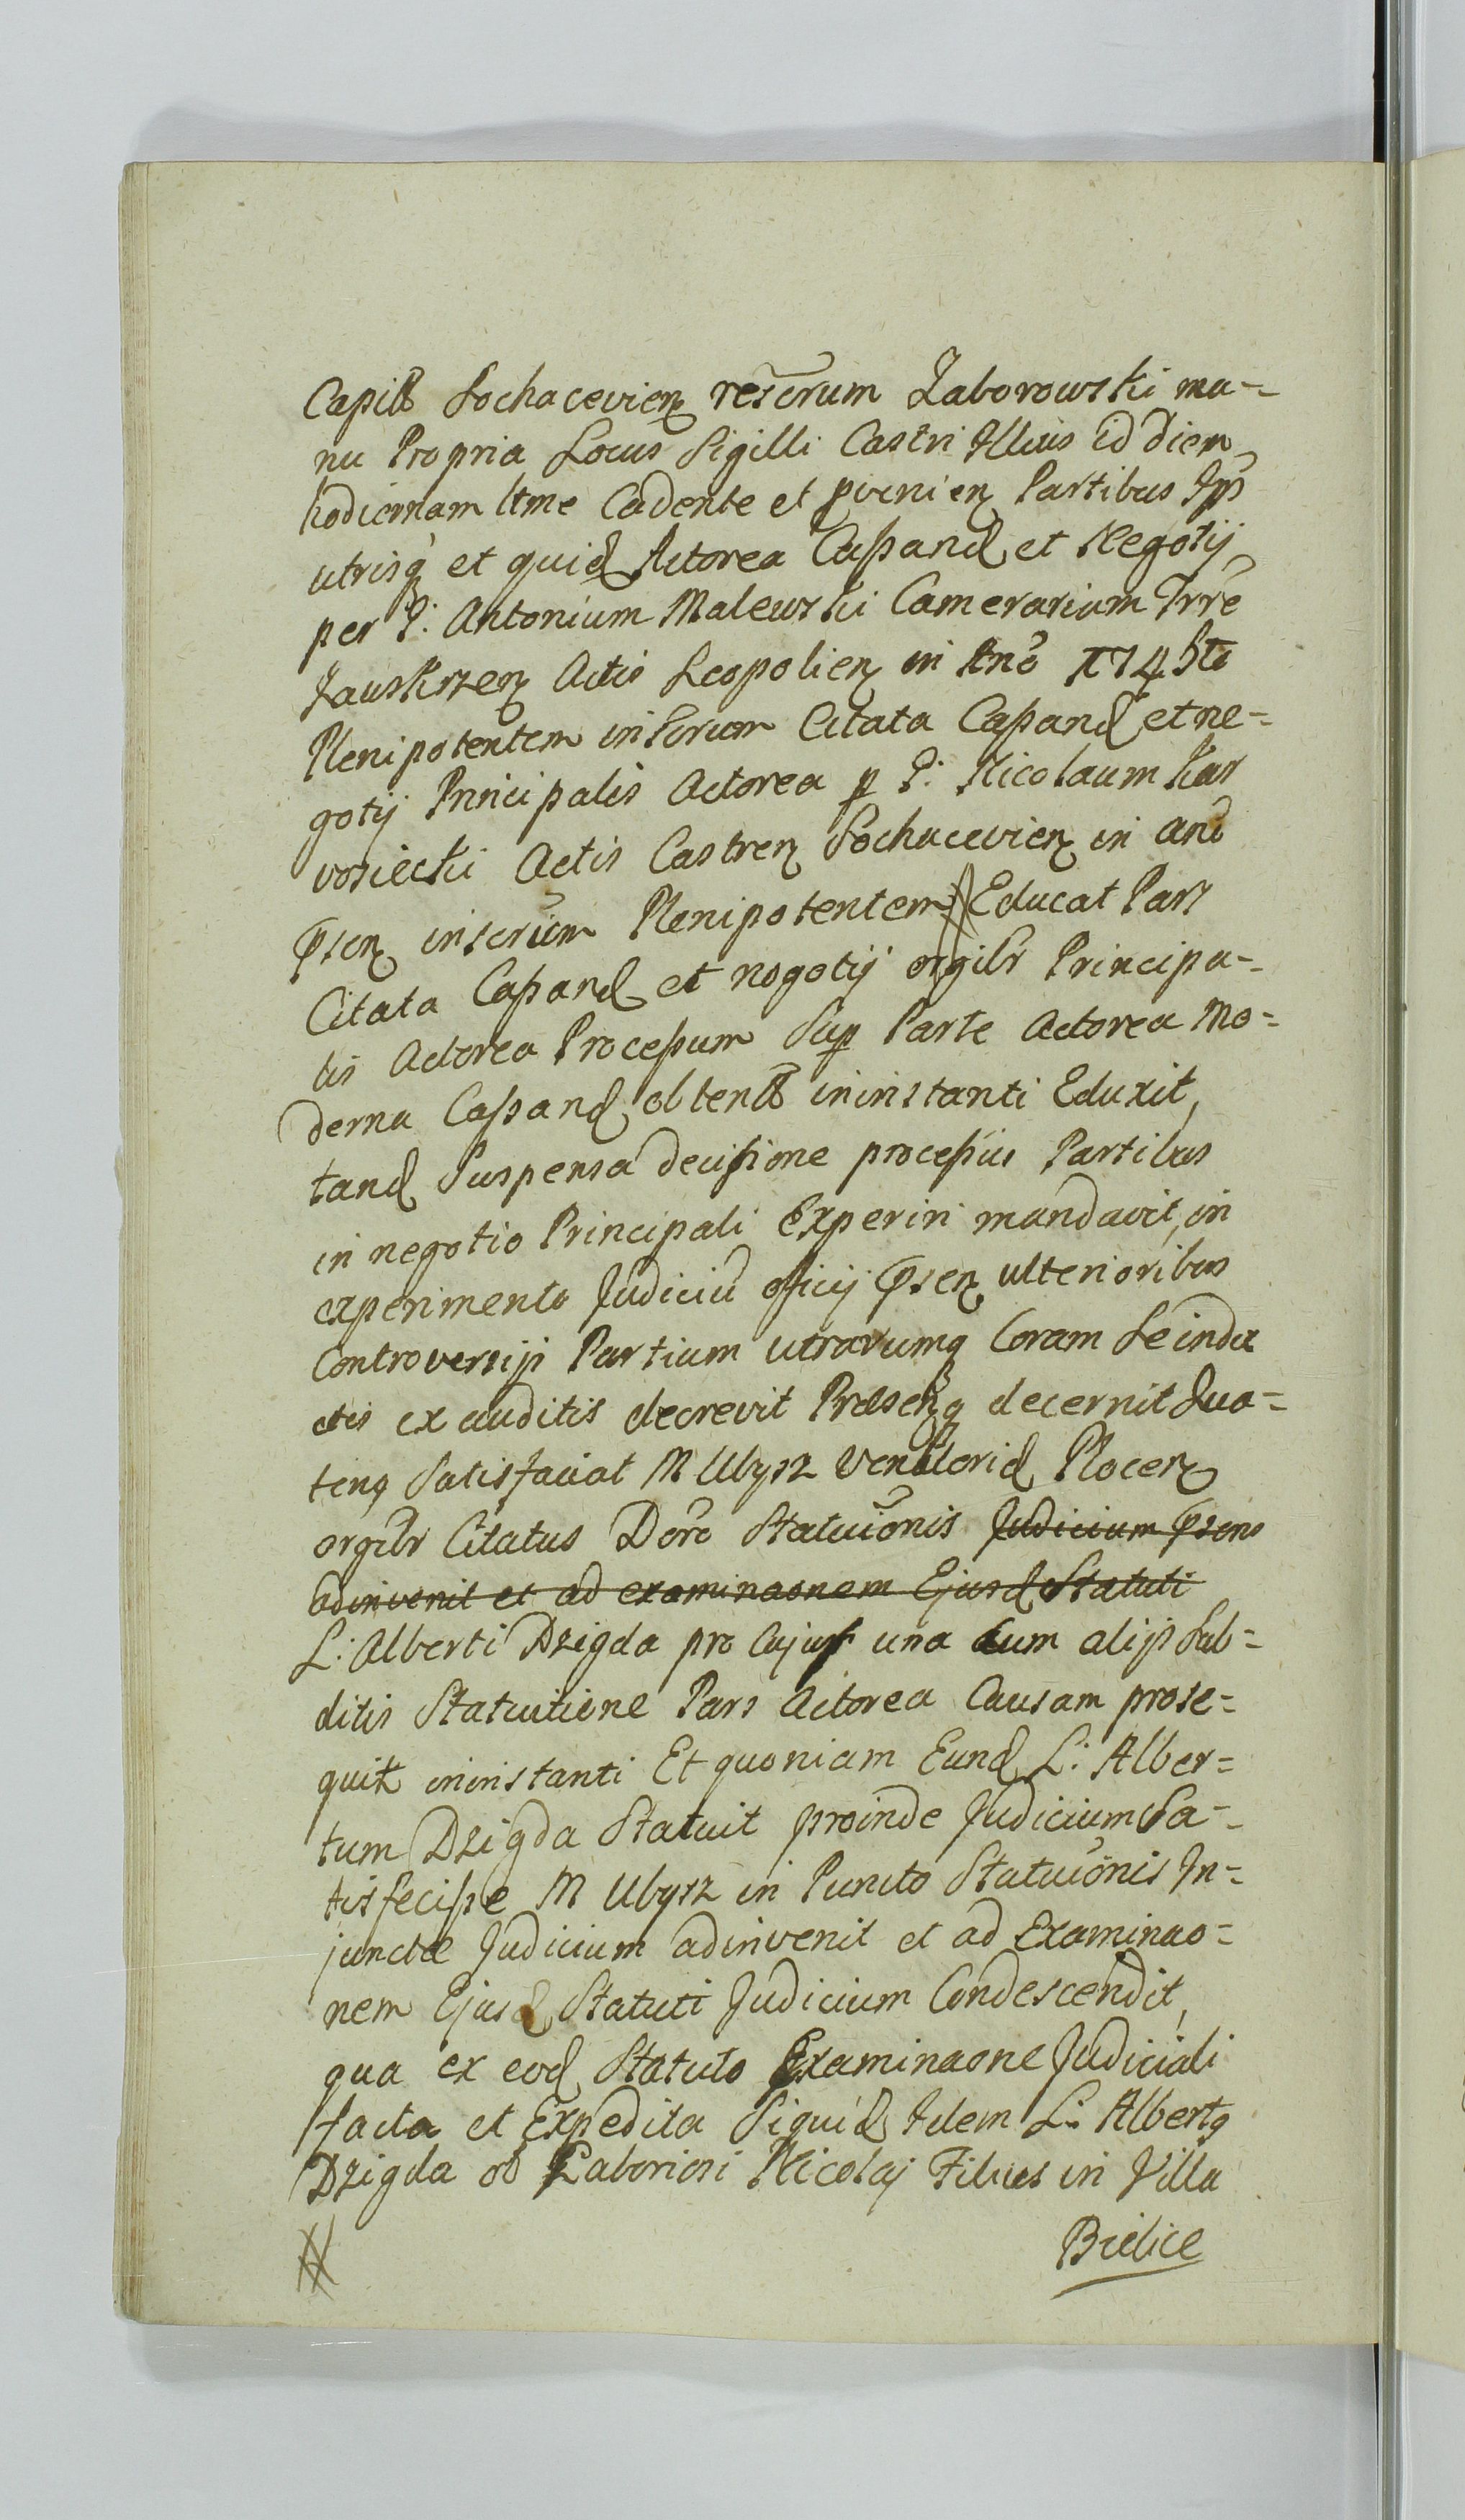 Capitt Sochacevien rescrum Zaborowski ma-
nu Propria Locus Sigilli Castri Illius id diem
hodiernam ltme Cadente et pvenien Partibus Ips
utrisq et quid Actorea Cassand et Negotij
per P: Antonium Malewski Camerarium Trre
Zauskrzen Actis Leopolien in Anō 1745to
Plenipotentem inscrum Citata Cassand et ne-
gotij Principalis Actorea p P: Nicolaum Kar
vosiecki Actis Castren Sochacevien in anō
psen inscrium Plenipotentem # Educat Pars
Citata Cassand et nogotij orgilr Principa-
lis Actorea Processum Sup Parte Actorea Mo-
derna Cassand obtentt in instanti Eduxit,
tand Suspensa decisione processus Partibus
in negotio Principali Experiri mandavit, in
experimento Judiciū officij psen ulterioribus
Controversijs Partium utrarumq Coram Se indu
ctis exauditis decrevit Præsenq decernit Qua-
tenq Satisfaciat M Ubysz Venatlorid Plocen
orgilr Citatus Dore Statuiōnis Judicium psens
adinvenit et ad examinaonem Ejusd Statuti
L: Alberti Dzigda pro Cujus una cum alijs Sub-
ditis Statuitiene Pars Actorea Causam prose-
quit in instanti Et quoniam Eund L: Alber-
tum Dzigda Statuit proinde Judicium Sa-
tisfecisse M Ubysz in Puncto Statuiōnis In-
junctæ Judicium adinvenit et ad Examinao-
nem Ejusd Statuti Judicium Condescendit,
qua ex eod Statuto Examinaone Judiciali
facta et Expedita Siquid Idem L: Albertq
Dzigda od Laboriosi Nicolaj Filius in Villa
# Bielice